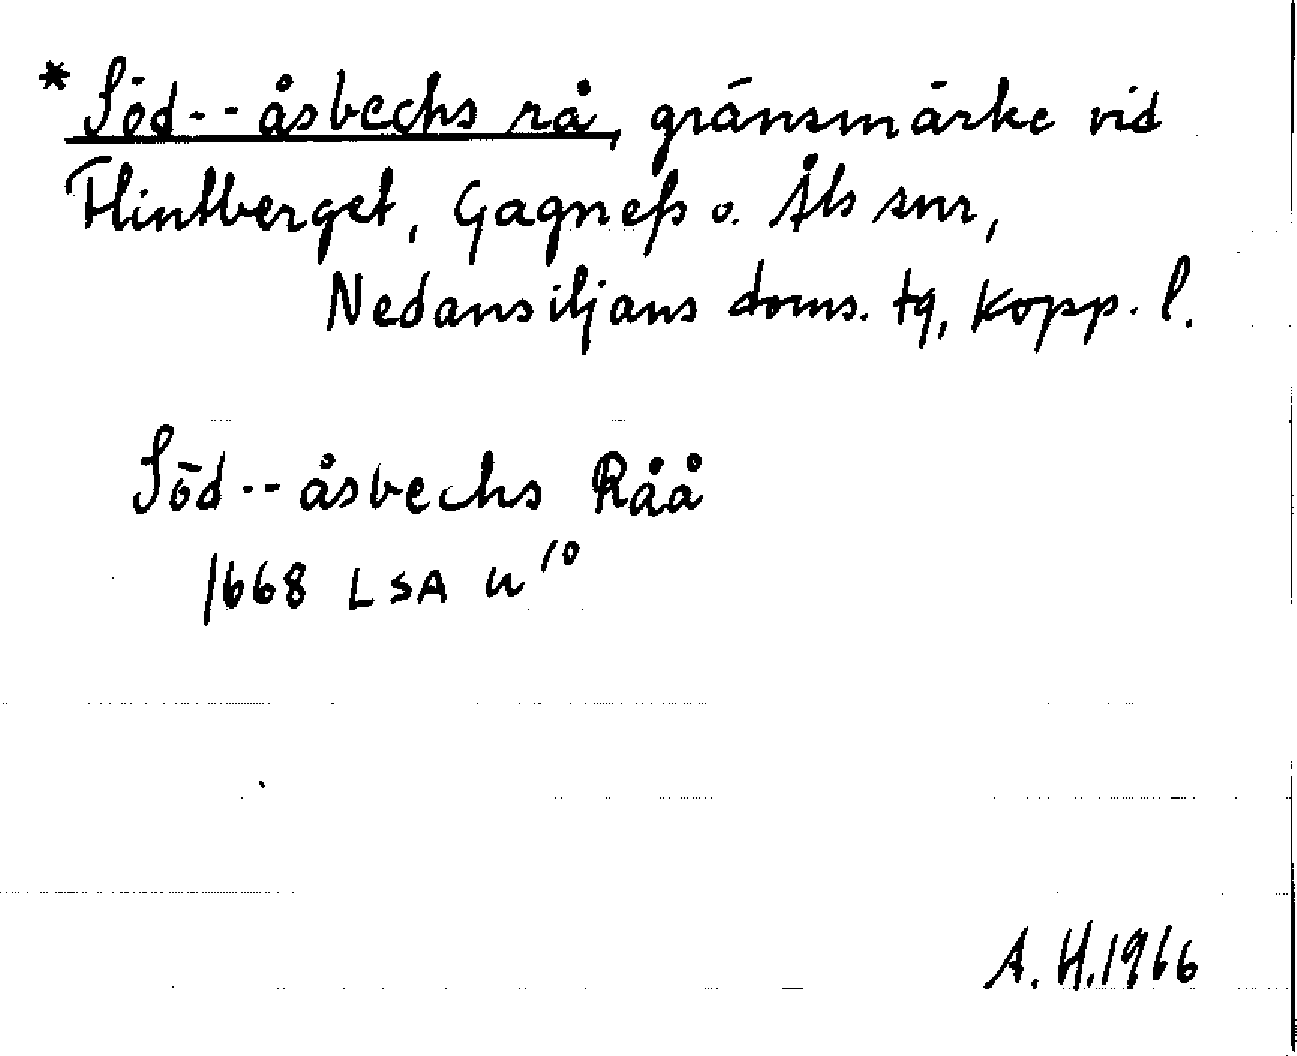 * Söd--åsbechs rå, gränsmärke vid
Flintberget, Gagnefs o. Åls snr,
Nedansiljans doms. tg, Kopp. l.
Söd--åsbechs Råå
1668 LSA U 10
A. H. 1966